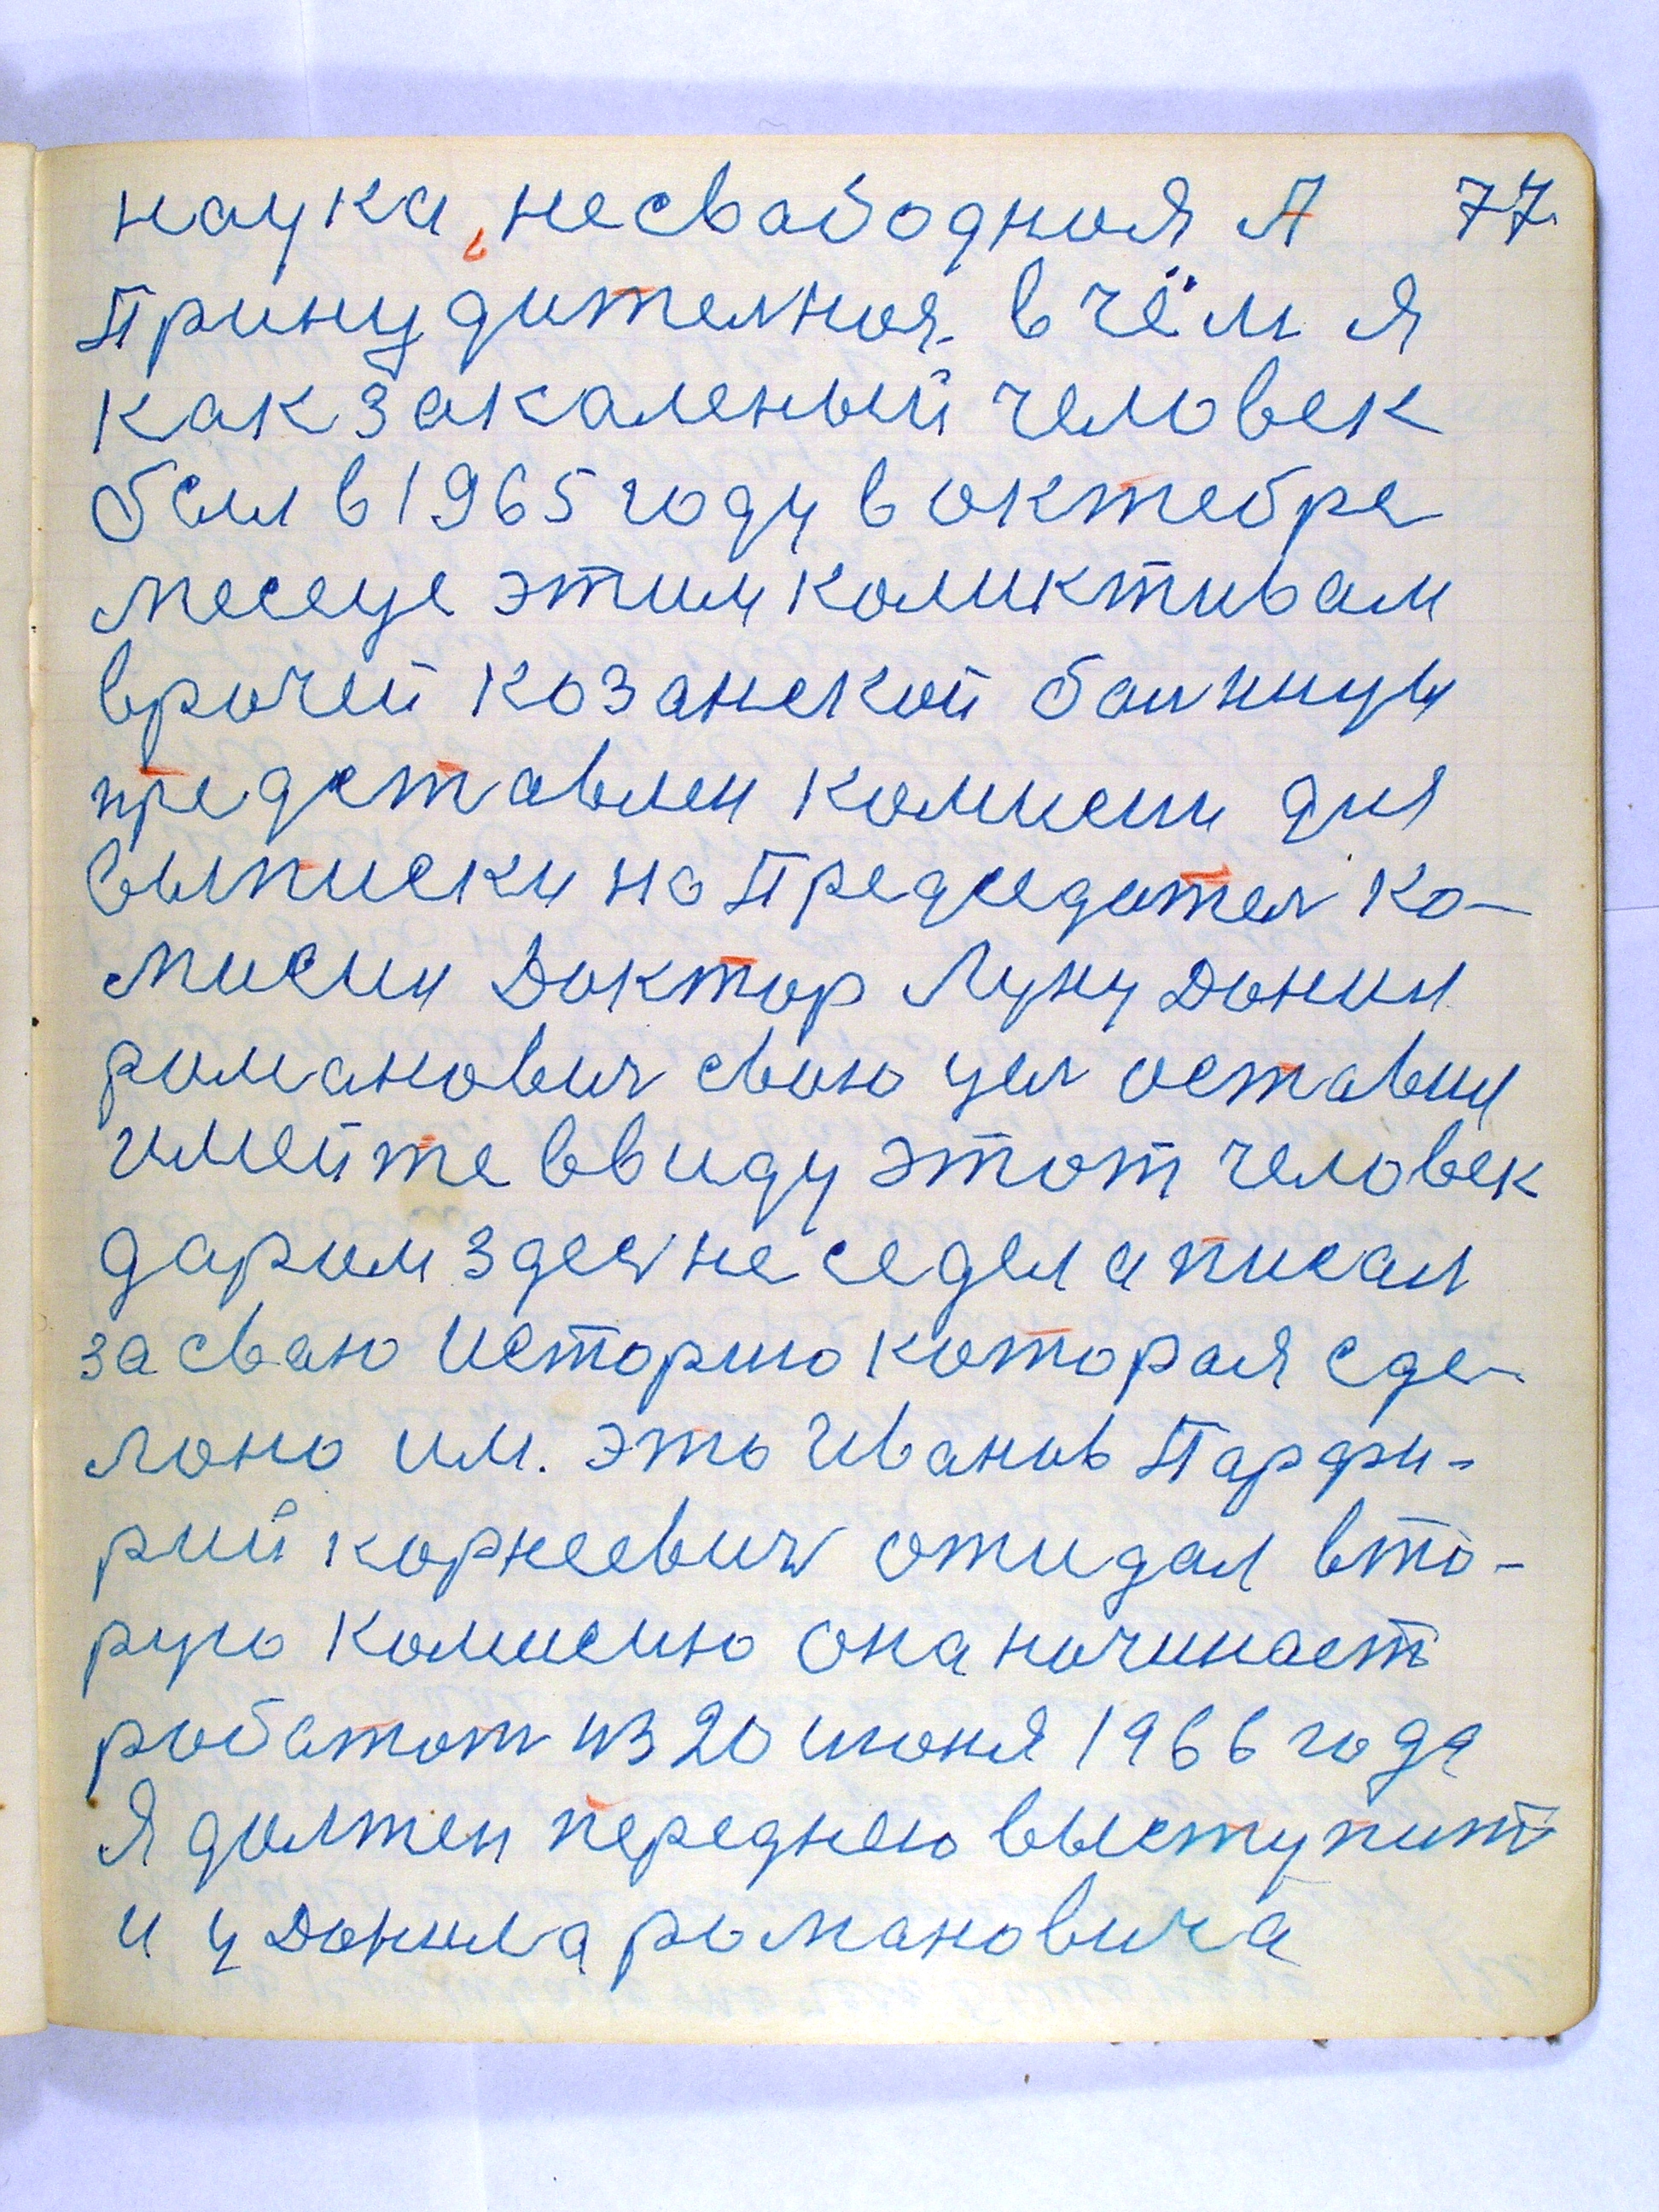 наука, несвабодная А 77.
Принудителная. в чём я
как закаленый человек
бел в 1965 году в октебре
месеце этим коликтивам
врачей козанской балницы
представлен комисии для
выписки но Председател ко-
мисии Доктор Луну Донил
романович свою цел оставил
имейте ввиду этот человек
даром здес не седел а писал
за сваю Историю которая сде-
лоно им. это Иванов Парфи-
рий корнеевич ожидал вто-
рую комисию она начинает
работат из 20 июня 1966 года
Я должен перед нею выступит
и у Донила романовича